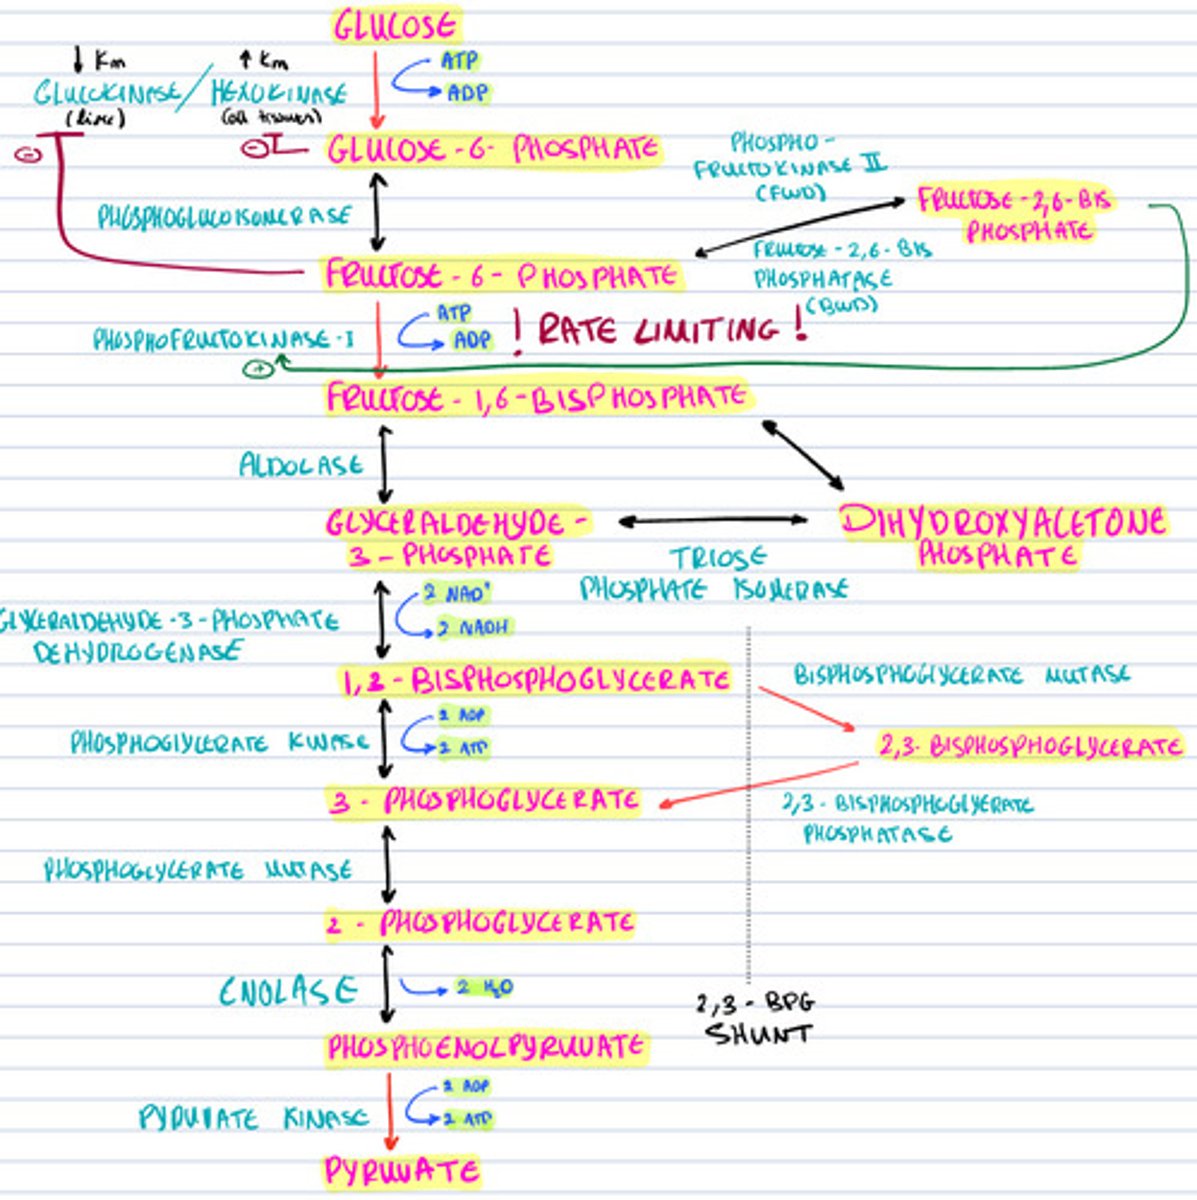 GLUCOSE
↓ Km
↑ Km
GLUCOKINASE / HEXOKINASE
(liver)
(all tissues)
ATP
ADP
⊖
⊖
GLUCOSE-6-PHOSPHATE
PHOSPHO-
FRUCTOKINASE II
(FWD)
FRUCTOSE-2,6-BIS
PHOSPHATE
PHOSPHOGLUCOISOMERASE
FRUCTOSE-2,6-BIS
PHOSPHATASE
(BWD)
FRUCTOSE-6-PHOSPHATE
ATP
ADP
! RATE LIMITING !
PHOSPHOFRUCTOKINASE-I
⊕
FRUCTOSE-1,6-BISPHOSPHATE
ALDOLASE
GLYCERALDEHYDE-
3-PHOSPHATE
DIHYDROXYACETONE
PHOSPHATE
TRIOSE
PHOSPHATE ISOMERASE
2 NAD⁺
2 NADH
GLYCERALDEHYDE-3-PHOSPHATE
DEHYDROGENASE
1,3-BISPHOSPHOGLYCERATE
BISPHOSPHOGLYCERATE MUTASE
2 ADP
2 ATP
PHOSPHOGLYCERATE KINASE
2,3-BISPHOSPHOGLYCERATE
3-PHOSPHOGLYCERATE
2,3-BISPHOSPHOGLYERATE
PHOSPHATASE
PHOSPHOGLYCERATE MUTASE
2-PHOSPHOGLYCERATE
ENOLASE
2 H₂O
2,3-BPG
SHUNT
PHOSPHOENOLPYRUVATE
2 ADP
2 ATP
PYRUVATE KINASE
PYRUVATE